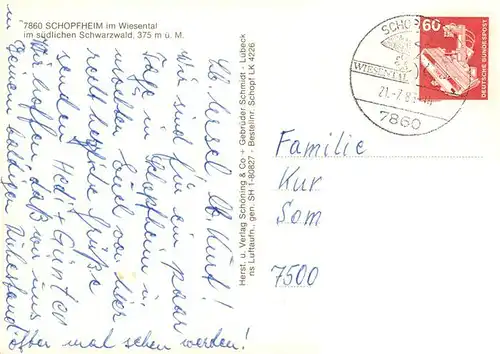 7860 SCHOPFHEIM im Wiesental
im südlichen Schwarzwald, 375 m ü. M.
Lb. Liesel, Lb. Kurt!
Wir sind für ein paar
Tage in Schopfheim u.
möchten Euch von hier
recht herzliche Grüße
senden. Hedi + Günter
Wir hoffen, daß wir uns
in Eurem baldigen Ruhestand
öfter mal sehen werden!
Herst. u. Verlag Schöning & Co + Gebrüder Schmidt - Lübeck
ns Luftaufn., gen. SH 1-80827 - Bestellnr. Schopf LK 4226
SCHOPF
WIESENTAL
21.-7.8
7860
60
DEUTSCHE BUNDESPOST
Familie
Kur
Som
7500